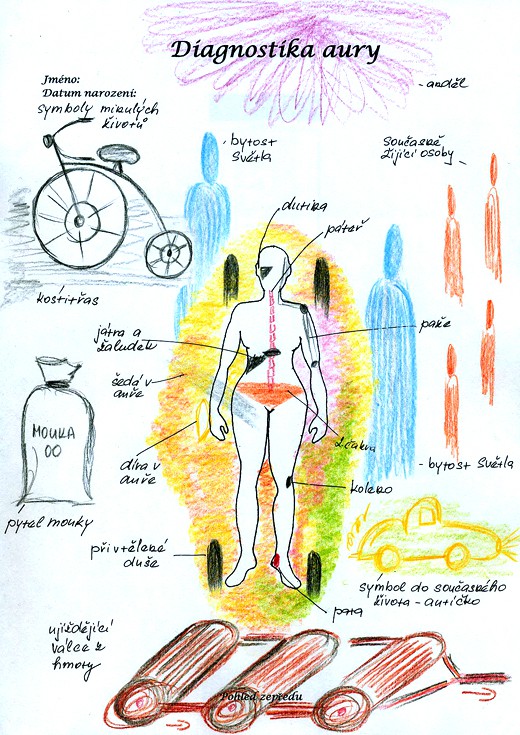 Diagnostika aury
Jméno:
Datum narození:
symboly minulých
životů
- anděl
bytost
Světla
současně
žijící osoby
dutina
páteř
kostitřas
játra a
žaludek
paže
šedá v
auře
MOUKA
OO
čakra
díra v
auře
- bytost Světla
koleno
pytel mouky
přivtělené
duše
symbol do současného
života - autíčko
pata
ujíždějící
válce z
hmoty
Pohled zepředu